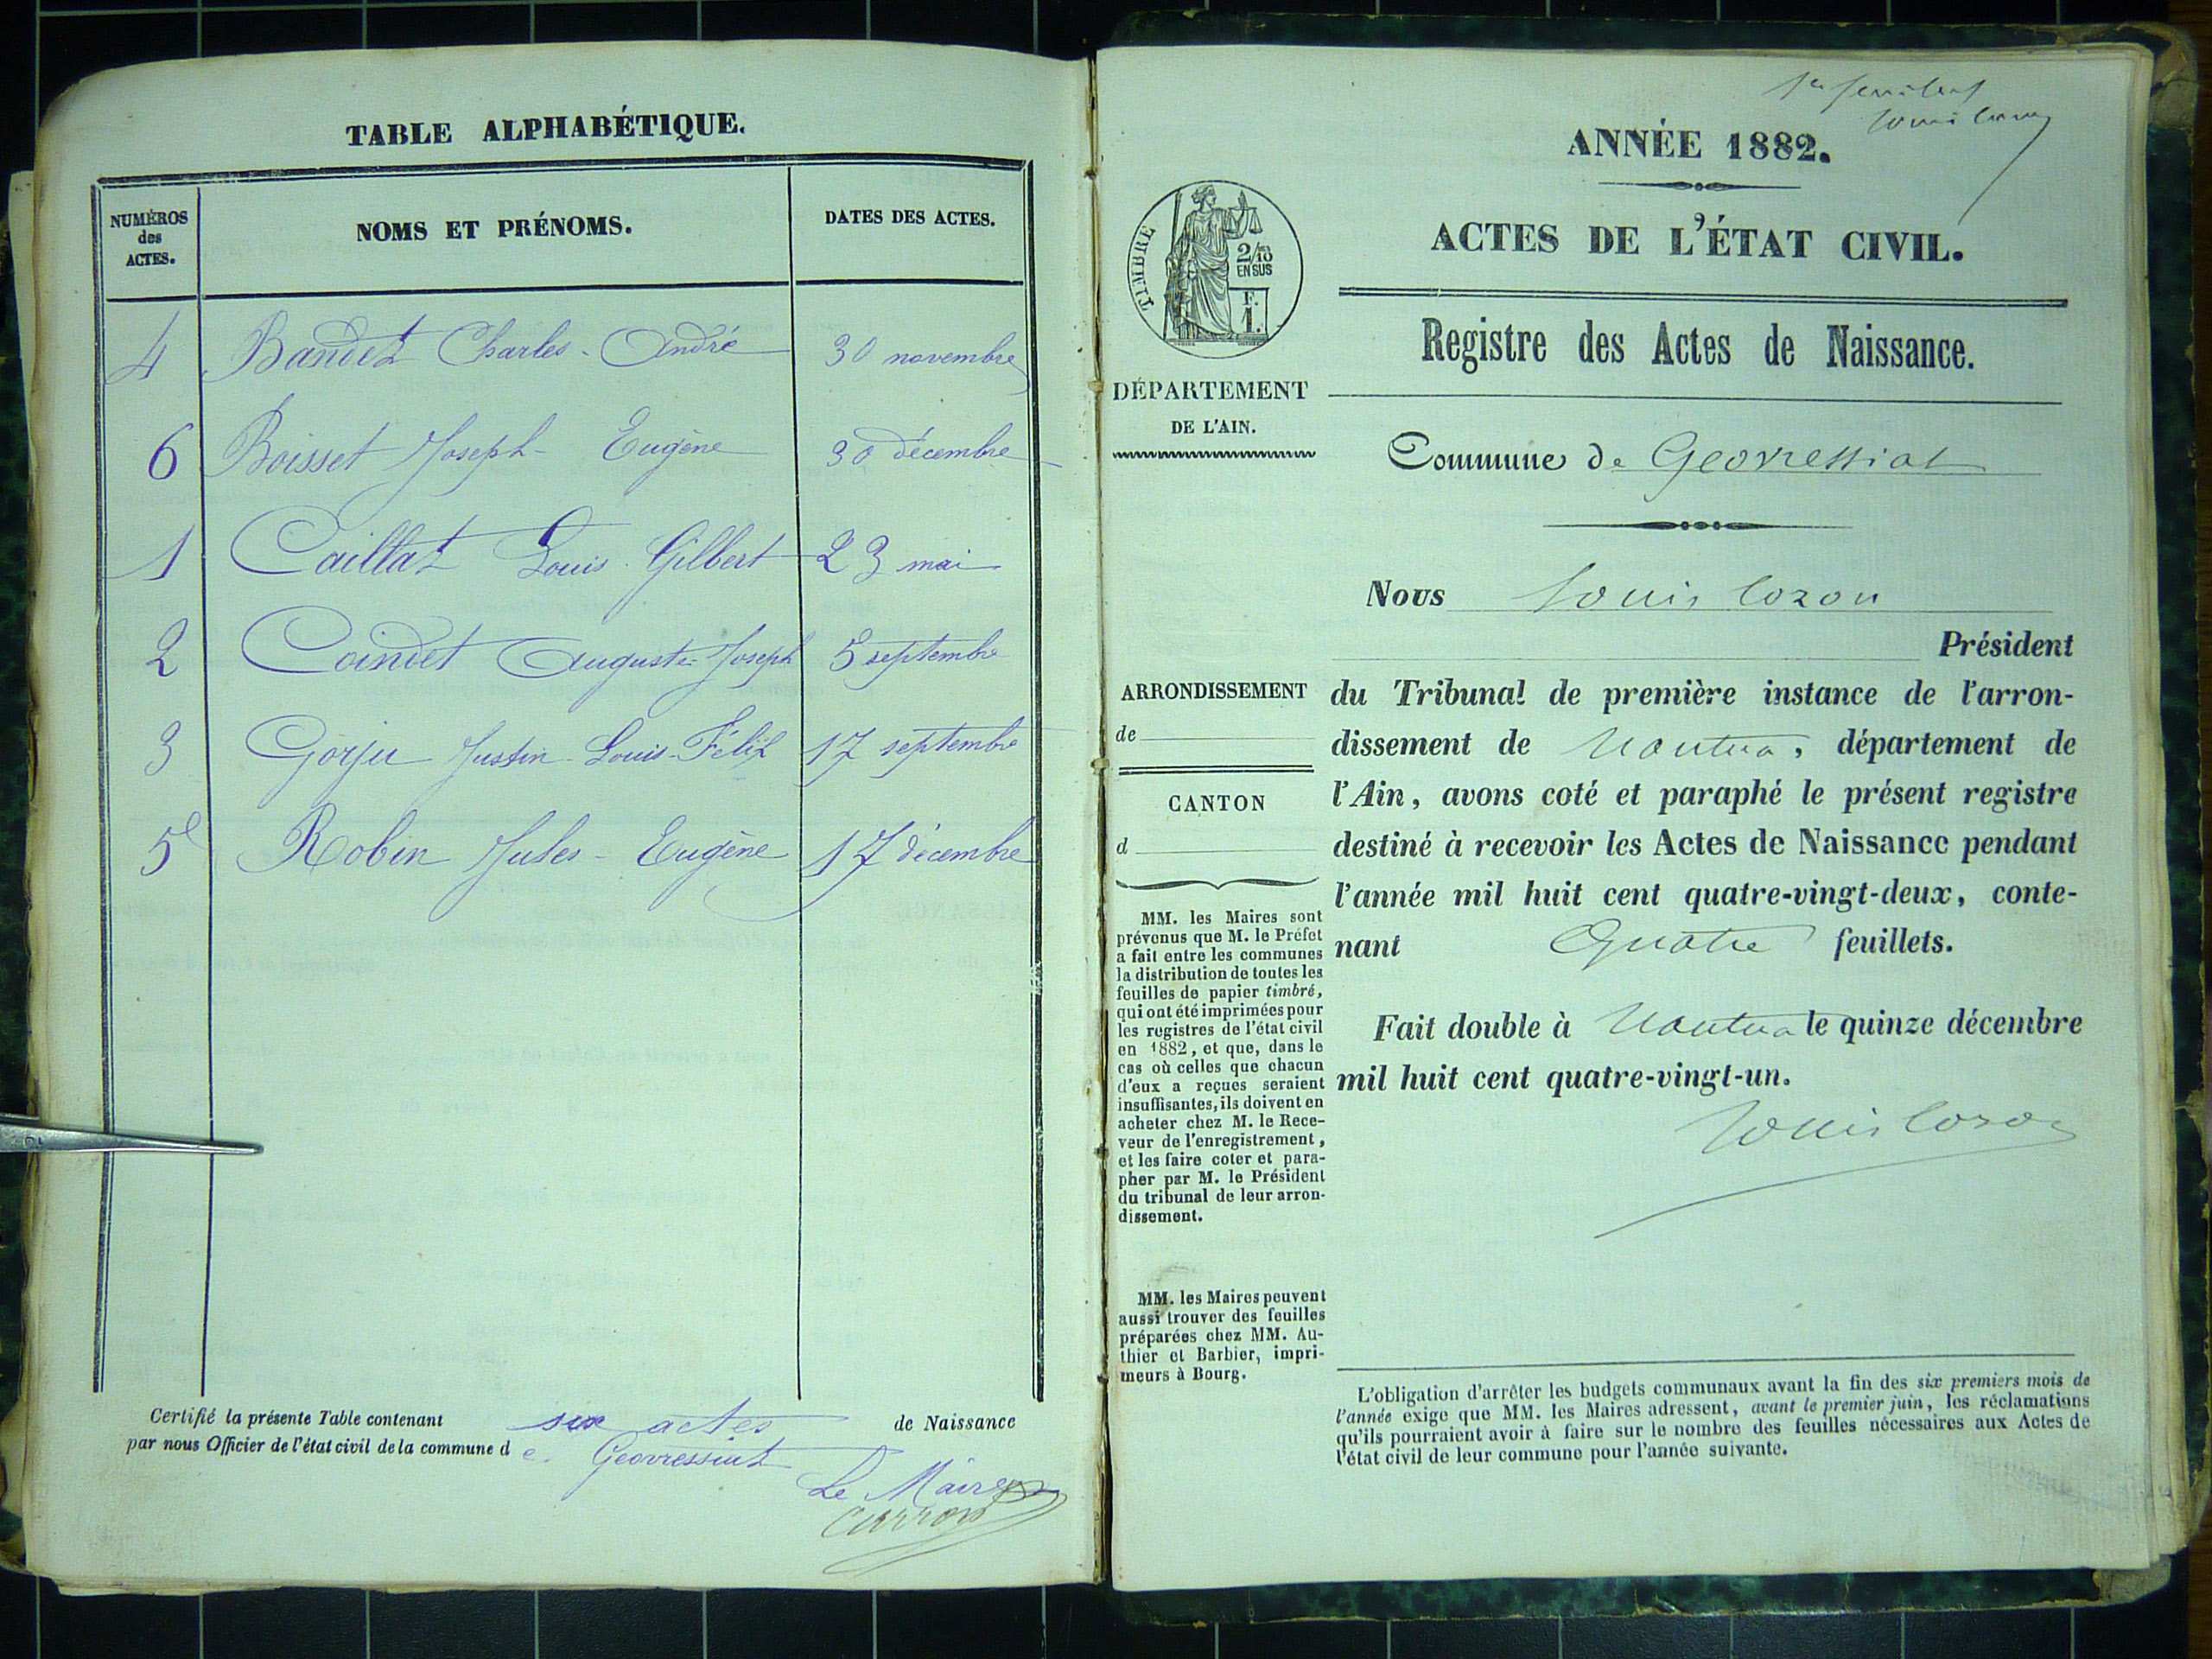 TABLE ALPHABÉTIQUE.
NUMÉROS
des
ACTES.
NOMS ET PRÉNOMS.
DATES DES ACTES.
4 Bandet Charles-André 30 novembre
6 Boisset Joseph-Eugène 30 décembre
1 Caillat Louis-Gilbert 23 mai
2 Coindet Auguste-Joseph 5 septembre
3 Gorju Justin-Louis-Félix 17 septembre
5 Robin Jules-Eugène 17 décembre
Certifié la présente Table contenant six actes de Naissance
par nous Officier de l'état civil de la commune de Geovressiat
Le Maire
Carron
1er feuillet
Louis Cozon
ANNÉE 1882.
ACTES DE L'ÉTAT CIVIL.
TIMBRE
2/10
EN SUS
F.
1.
Registre des Actes de Naissance.
DÉPARTEMENT
DE L'AIN.
Commune de Geovressiat
Nous Louis Cozon
Président
ARRONDISSEMENT
de
CANTON
d
du Tribunal de première instance de l'arron-
dissement de Nantua, département de
l'Ain, avons coté et paraphé le présent registre
destiné à recevoir les Actes de Naissance pendant
l'année mil huit cent quatre-vingt-deux, conte-
nant Quatre feuillets.
Fait double à Nantua le quinze décembre
mil huit cent quatre-vingt-un.
Louis Cozon
MM. les Maires sont
prévenus que M. le Préfet
a fait entre les communes
la distribution de toutes les
feuilles de papier timbré,
qui ont été imprimées pour
les registres de l'état civil
en 1882, et que, dans le
cas où celles que chacun
d'eux a reçues seraient
insuffisantes, ils doivent en
acheter chez M. le Rece-
veur de l'enregistrement,
et les faire coter et para-
pher par M. le Président
du tribunal de leur arron-
dissement.
MM. les Maires peuvent
aussi trouver des feuilles
préparées chez MM. Au-
thier et Barbier, impri-
meurs à Bourg.
L'obligation d'arrêter les budgets communaux avant la fin des six premiers mois de
l'année exige que MM. les Maires adressent, avant le premier juin, les réclamations
qu'ils pourraient avoir à faire sur le nombre des feuilles nécessaires aux Actes de
l'état civil de leur commune pour l'année suivante.